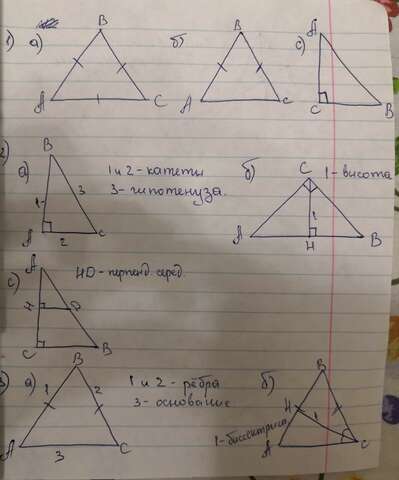 1) а) B б) B с) A
A C A C C B
2)
а) B 1 и 2 - катеты б) C 1 - высота
1 3 3 - гипотенуза. 1
A 2 C A H B
с) A HD - перпенд. серед.
H D
C B
3) а) B 1 и 2 - рёбра б) B
1 2 3 - основание H
1 - биссектриса 1
A 3 C A C